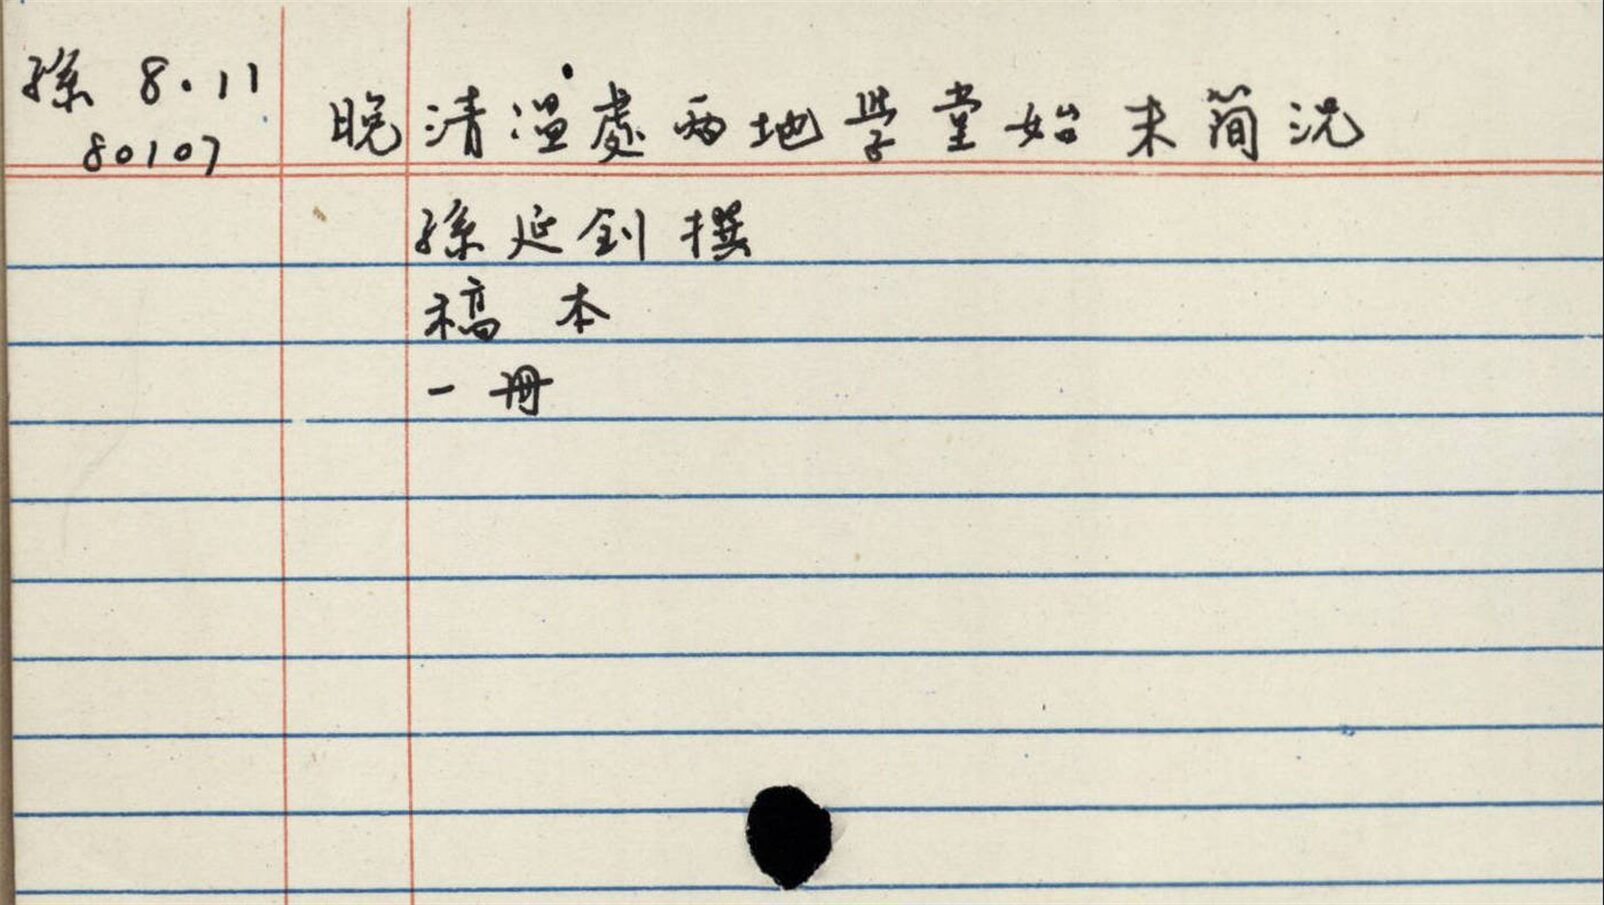 孫 8.11
80107
晚清溫處兩地學堂始末簡況
孫延釗撰
稿本
一冊